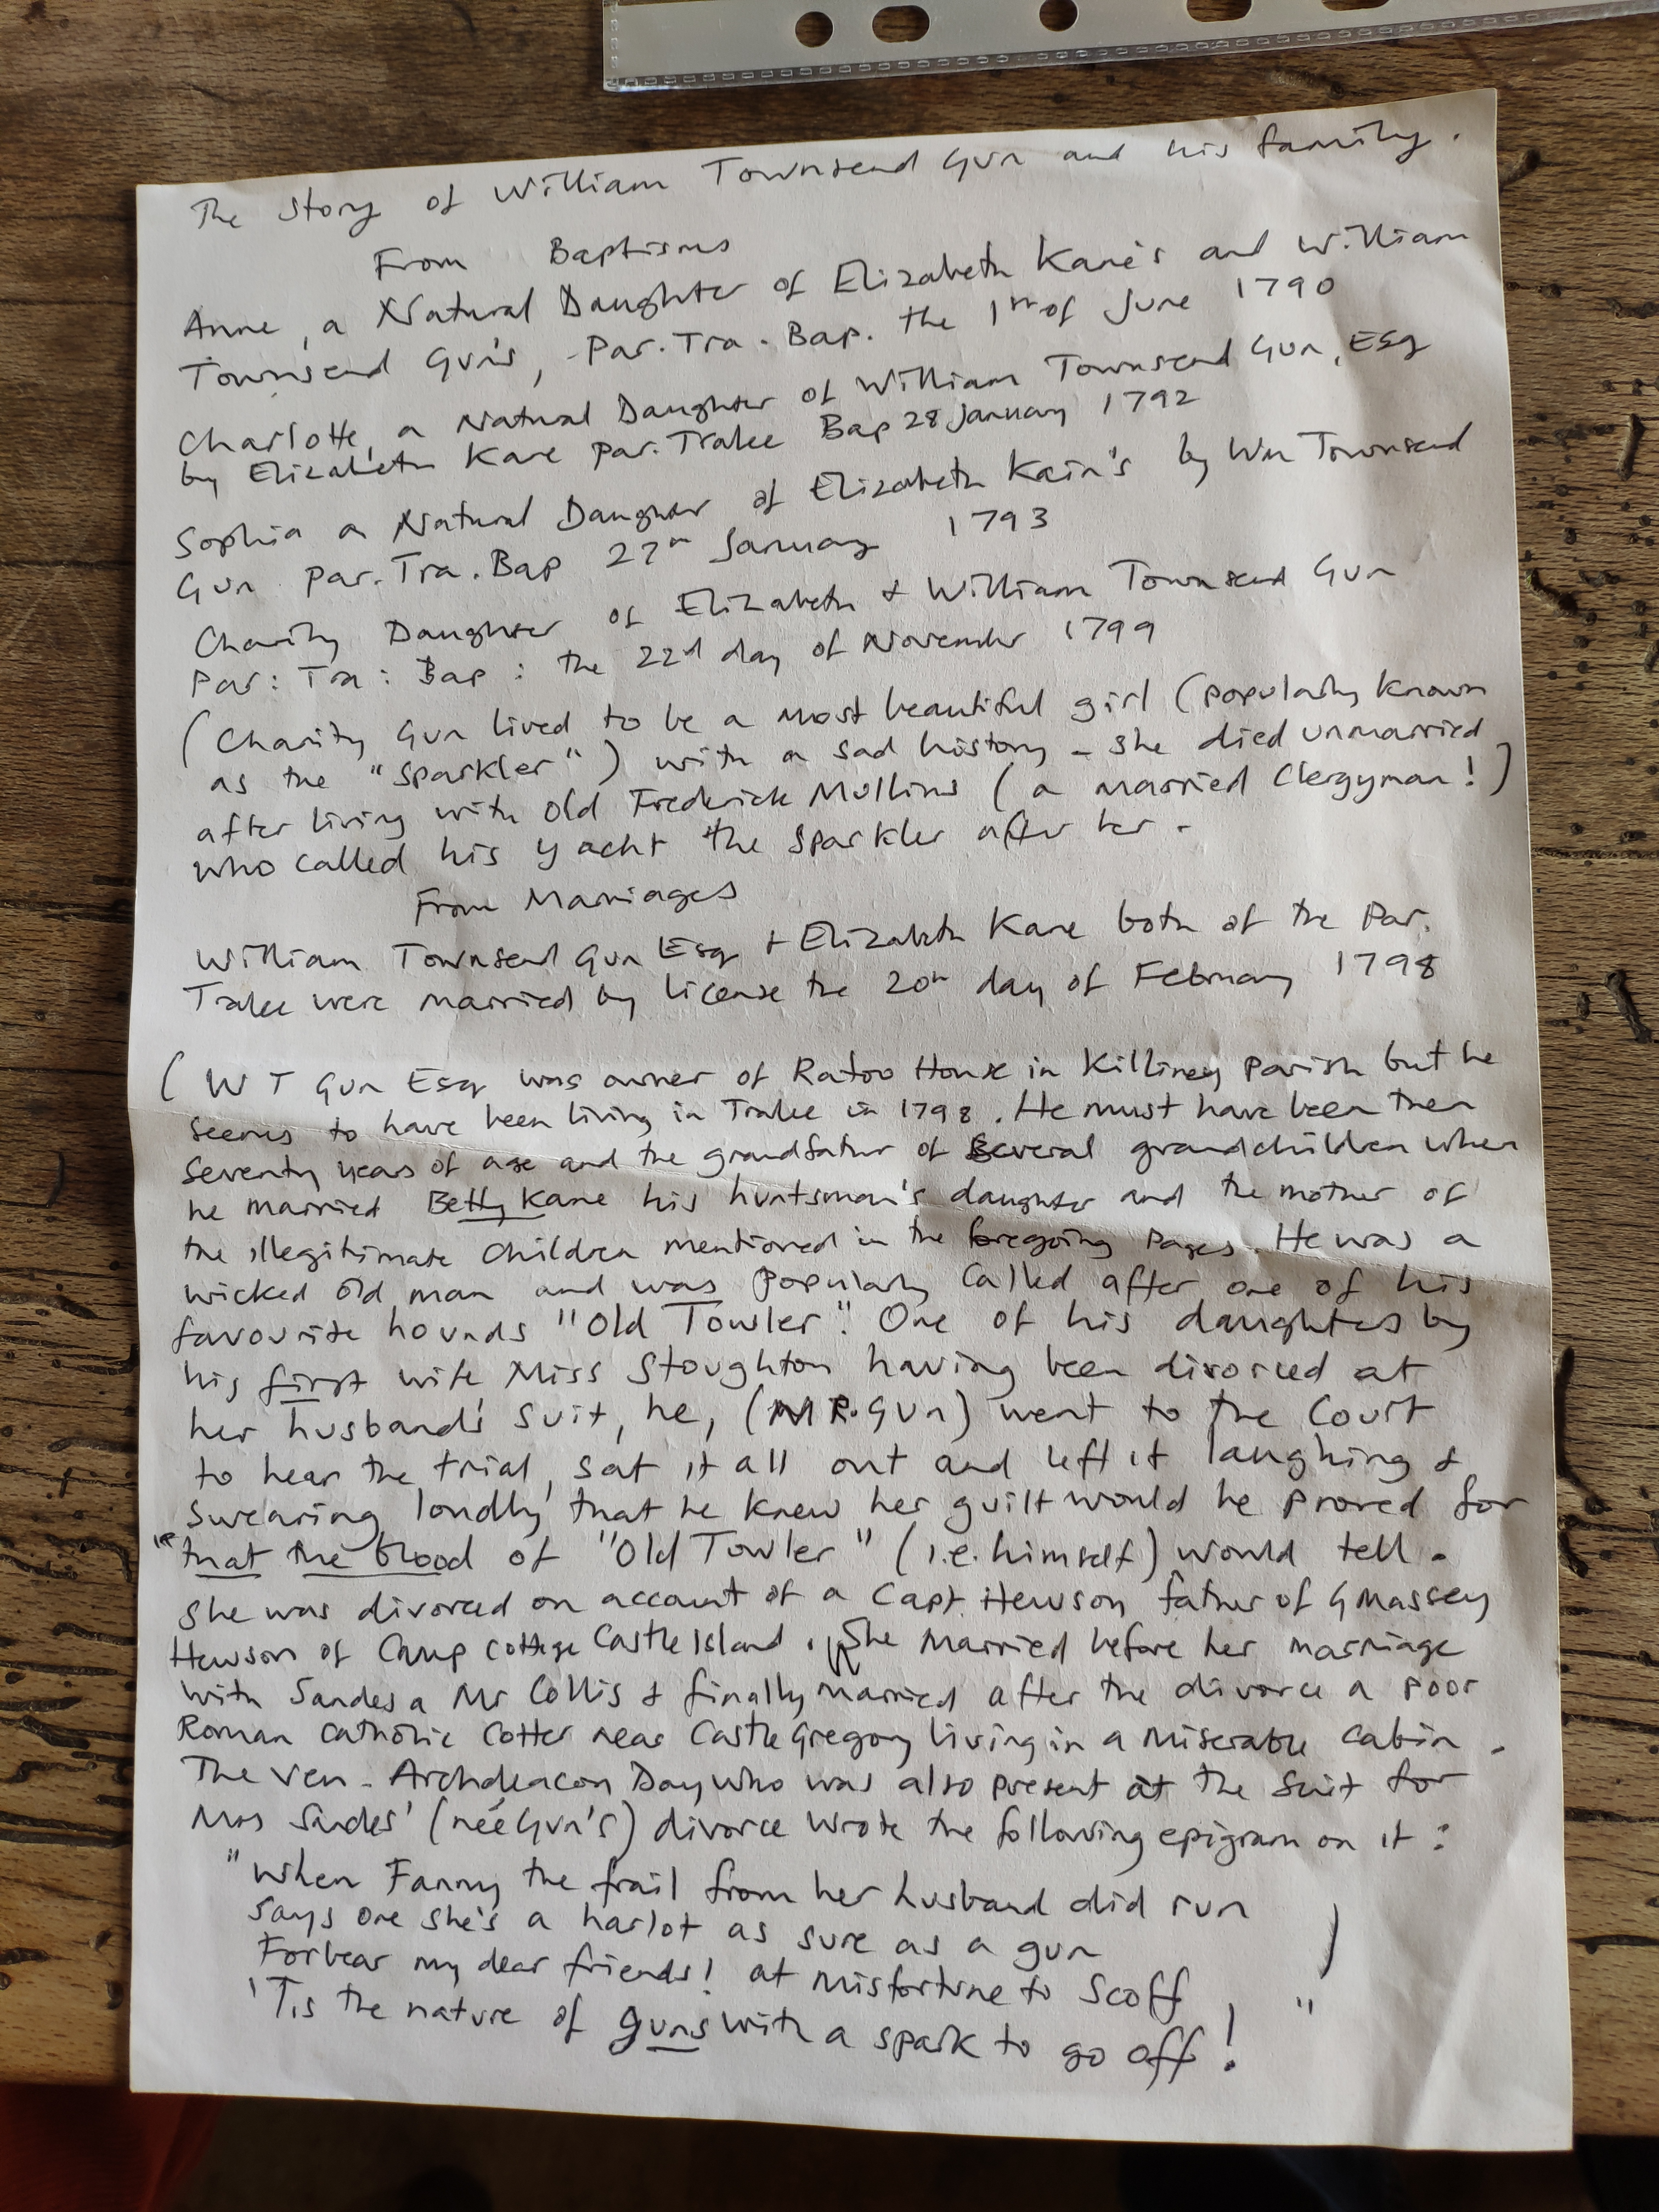 The Story of William Townsend Gun and his family.
From Baptisms
Anne, a Natural Daughter of Elizabeth Kane's and William
Townsend Gun's, - Par. Tra. Bap. the 1st of June 1790
Charlotte, a Natural Daughter of William Townsend Gun, Esq
by Elizabeth Kane Par. Tralee Bap 28 January 1792
Sophia a Natural Daughter of Elizabeth Kain's by Wm Townsend
Gun Par. Tra. Bap 27th January 1793
Charity Daughter of Elizabeth & William Townsend Gun
Par: Tra: Bap: the 22d day of November 1799
(Charity Gun lived to be a most beautiful girl (popularly known
as the "Sparkler") with a sad history - she died unmarried
after living with old Frederick Mullins (a married Clergyman!)
who called his yacht the Sparkler after her -
From Marriages
William Townsend Gun Esq & Elizabeth Kane both of the Par.
Tralee were married by license the 20th day of February 1798
(W T Gun Esq was owner of Ratoo House in Killiney Parish but he
seems to have been living in Tralee in 1798. He must have been then
seventy years of age and the grandfather of several grandchildren when
he married Betty Kane his huntsman's daughter and the mother of
the illegitimate children mentioned in the foregoing pages. He was a
wicked old man and was popularly called after one of his
favourite hounds "Old Towler". One of his daughters by
his first wife Miss Stoughton having been divorced at
her husband's suit, he, (MR. Gun) went to the Court
to hear the trial, sat it all out and left it laughing &
swearing loudly that he knew her guilt would be proved for
"that the blood of "Old Towler" (i.e. himself) would tell.
She was divorced on account of a Capt. Hewson father of G Massey
Hewson of Camp Cottage Castle Island. She married before her marriage
with Sandes a Mr Collis & finally married after the divorce a poor
Roman Catholic Cotter near Castle Gregory living in a miserable cabin.
The Ven. Archdeacon Day who was also present at the suit for
Mrs Sandes' (neé Gun's) divorce wrote the following epigram on it:
"When Fanny the frail from her husband did run
Says one she's a harlot as sure as a gun )
Forbear my dear friends! at misfortune to scoff,
'Tis the nature of guns with a spark to go off! "